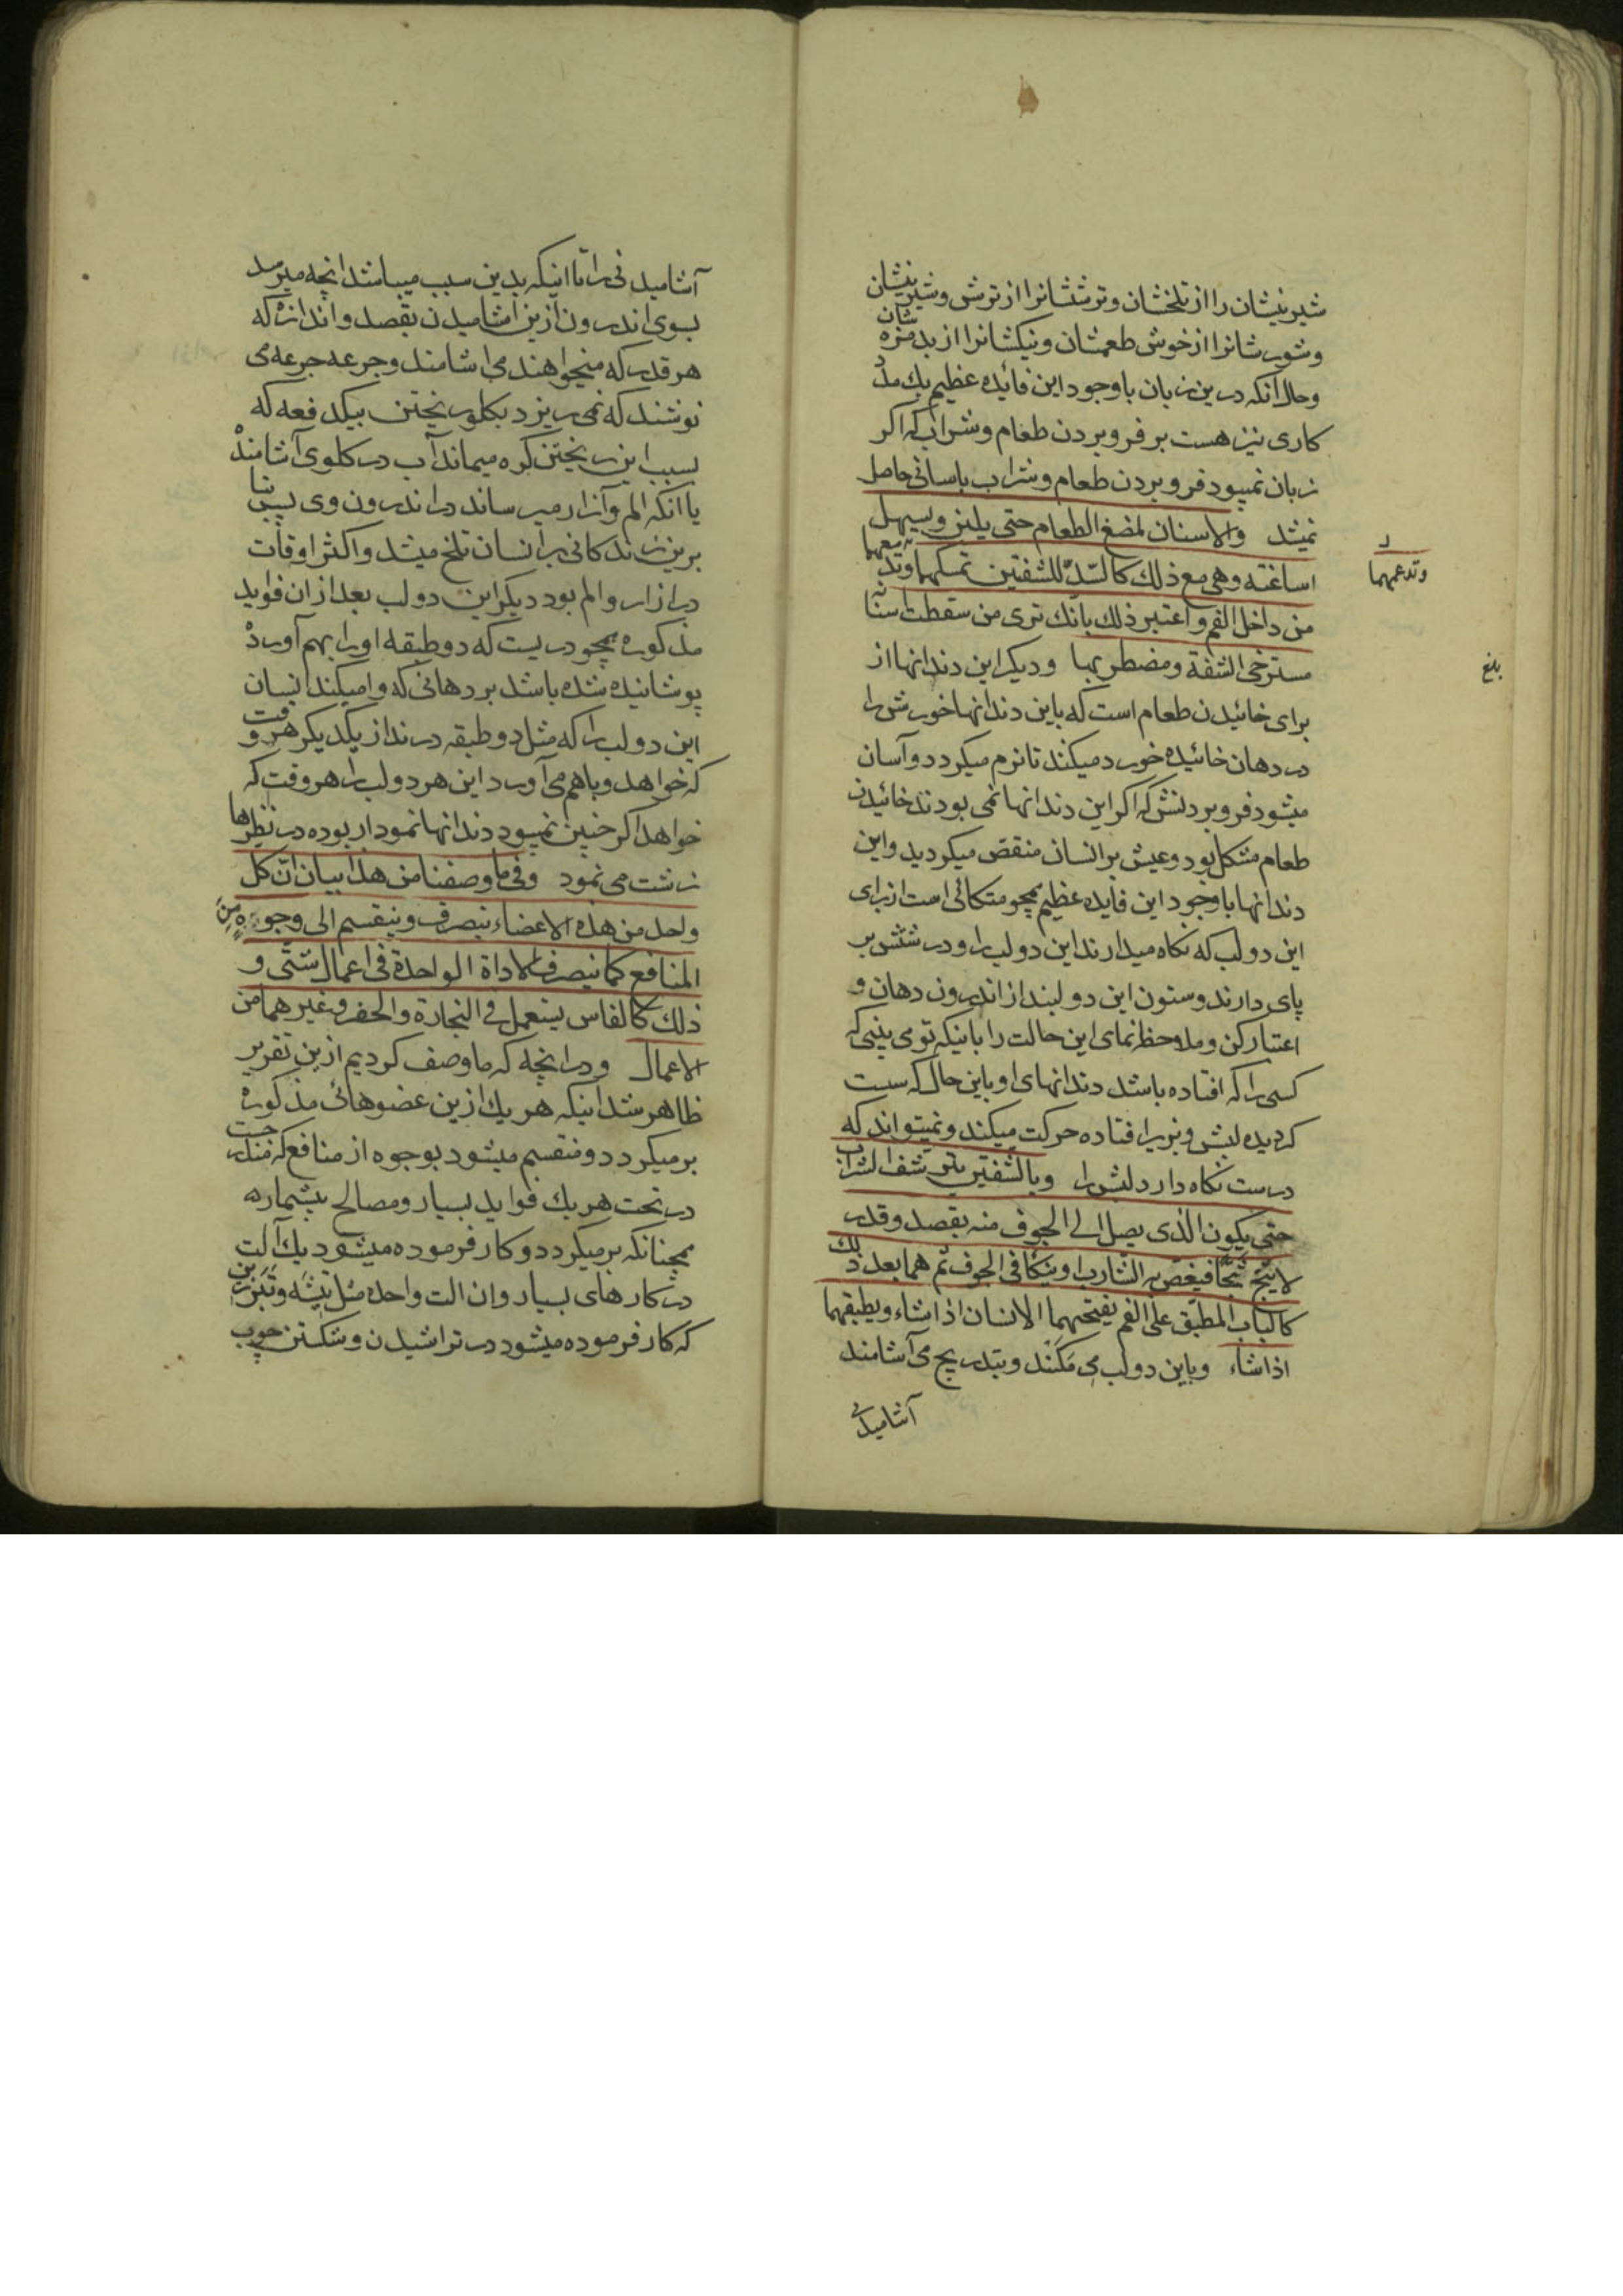 شیرینیشان را از تلخشان و ترششانرا از ترش و شیرینیشان
و شورشانرا از خوش طعمشان و نیکشانرا از بدمزه شان
و حال آنکه درین زبان با وجود این فائده عظیم یك مدد
کاری نیز هست بر فرو بردن طعام و شراب که اکر
زبان نمیبود فرو بردن طعام و شراب باسانی حاصل
نمیشد والاسنان لمضغ الطعام حتی یلین ویسهل
اساغته وهی مع ذلك کالسّدّ للشفتین تمسکهما وتدعمهما
من داخل الفم واعتبر ذلك بانّك تری من سقطت اسنانه
مسترخی الشفة ومضطربها و دیکر این دندانها از
برای خائیدن طعام است که باین دندانها خورش را
در دهان خائیده خورد میکند تا نرم میکردد و آسان
میشود فرو بردنش که اکر این دندانها نمی بودند خائیدن
طعام مشکل بود و عیش بر انسان منقص میکردید و این
دندانها با وجود این فایده عظیم همچو متکائی است از برای
این دو لب که نکاه میدارند این دو لب را و درشتش بر
پای دارند و ستون این دو لبند از اندرون دهان و
اعتبار کن و ملاحظه نمای این حالت را باینکه تو می بینی که
کسی را که افتاده باشد دندانهای او باین حال که سست
کردیده لبش و بزیر افتاده حرکت میکند و نمیتواند که
درست نکاه دارد لبش را وبالشفتین یترشف الشراب
حتی یکون الذی یصل الی الجوف منه بقصد وقدر
لا یثج ثجّا فیغصّ به الشارب او ینکا فی الجوف ثم هما بعد ذلك
کالباب المطبّق علی الفم یفتحهما الانسان اذا شاء ویطبقهما
اذا شاء و باین دو لب می مَکَنَند و بتدریج می آشامند
آشامیدنی
وتدعمهما
بلغ
آشامیدنی را تا اینکه بدین سبب میباشد انچه میرسد
بسوی اندرون ازین اشامیدن بقصد و اندازه که
هر قدر که میخواهند می اشامند و جرعه جرعه می
نوشند که نمی ریزد بکلو ریختن بیکدفعه که
بسبب این ریختن کره میماند آب در کلوی آشامنده
یا انکه الم و آزار میرساند در اندرون وی پس بنا
برین زندکانی بر انسان تلخ میشد و اکثر اوقات
در ازار و الم بود دیکر این دو لب بعد از ان فواید
مذکوره همچو دریست که دو طبقه او را بهم آورده
پوشانیده شده باشد بر دهانی که وامیکند انسان
این دو لب را که مثل دو طبقه درند از یکدیکر هر وقت
که خواهد و باهم می آورد این هر دو لب را هر وقت که
خواهد اکر چنین نمیبود دندانها نمودار بوده در نظرها
زشت می نمود وفی ما وصفنا من هذا بیان انّ کل
واحد من هذه الاعضاء یتصرف وینقسم الی وجوه مِن
المنافع کما یتصرف الاداة الواحدة فی اعمال شتّی و
ذلك کالفاس یستعمل فی النجارة والحفر وغیرهما من
الاعمال و در انچه که ما وصف کردیم ازین تقریر
ظاهر شد اینکه هر یك ازین عضوهائی مذکوره
برمیکردد و منقسم میشود بوجوه از منافع که مندرجست
در تحت هر یك فواید بسیار و مصالح بیشماره
همچنانکه برمیکردد و کار فرموده میشود یك آلت
در کارهای بسیار و ان الت واحده مثل تیشه و تَبَرزین
که کار فرموده میشود در تراشیدن و شکستن چوب